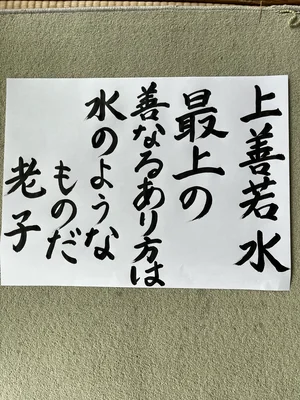 上善若水
最上の
善なるあり方は
水のような
ものだ
老子